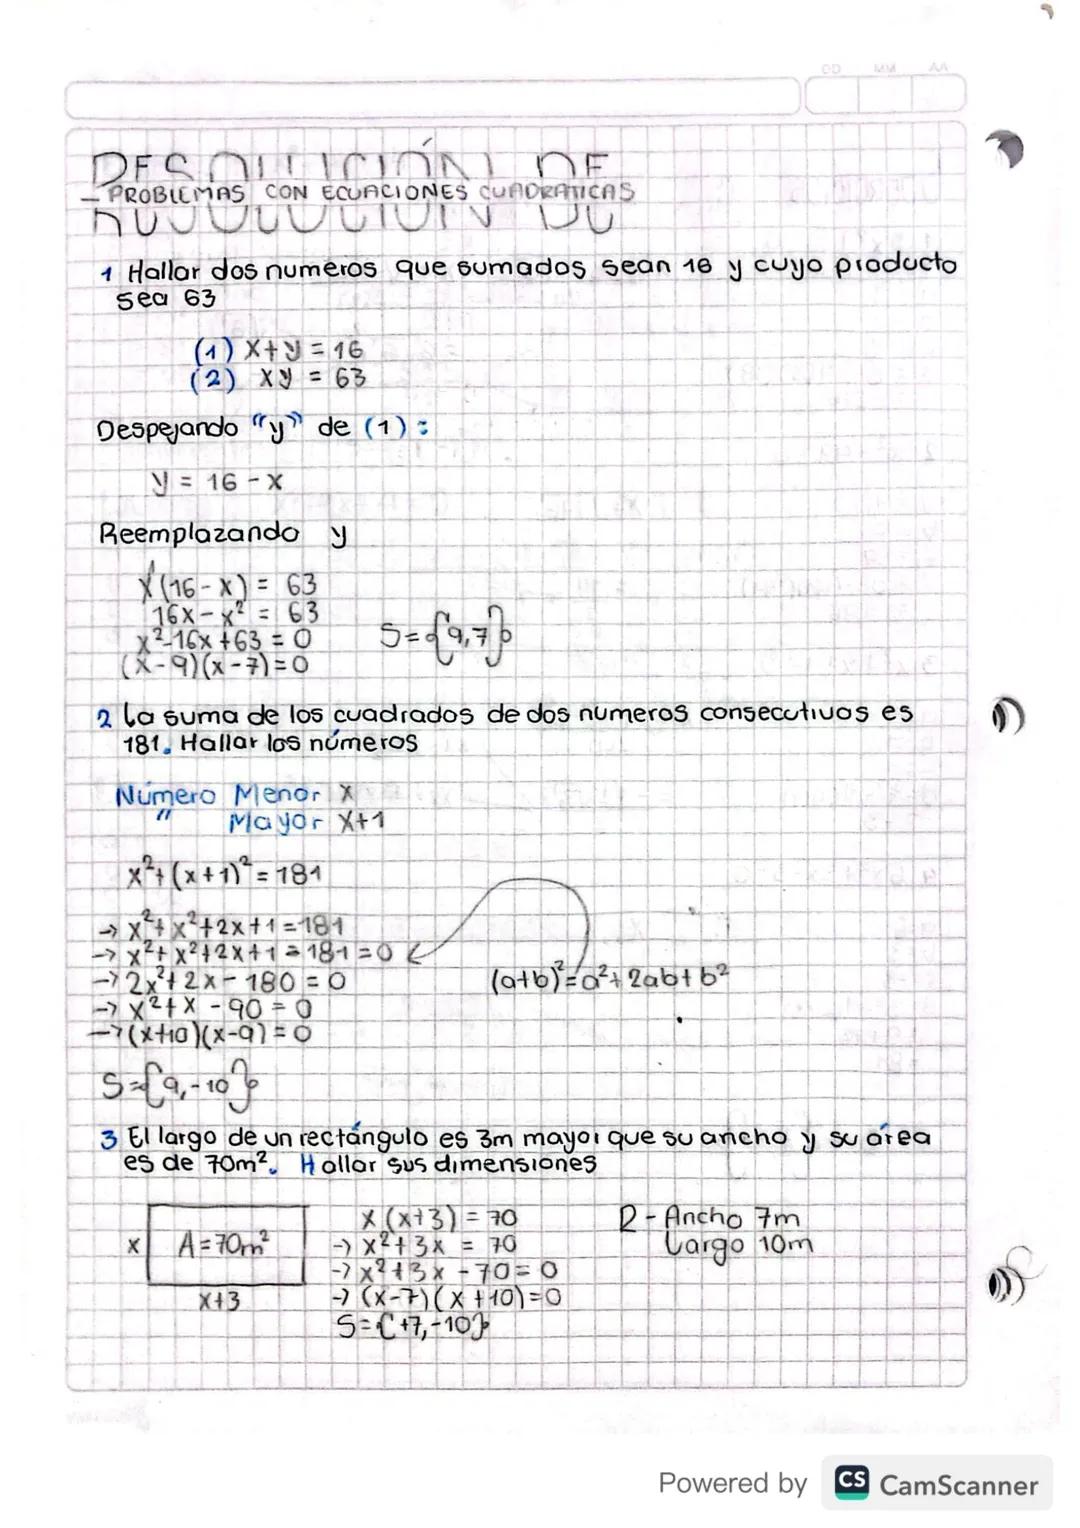 DD MM AA
RESOLUCIÓN DE
- PROBLEMAS CON ECUACIONES CUADRATICAS
1 Hallar dos numeros que sumados sean 16 y cuyo producto
sea 63
(1) x+y = 16
(2) xy = 63
Despejando "y" de (1):
y = 16 - x
Reemplazando y
x(16-x) = 63
16x - x² = 63
x²-16x+63 = 0
(x-9)(x-7)=0
S={9,7}
2 La suma de los cuadrados de dos numeros consecutivos es
181. Hallar los números
Número Menor x
" Mayor x+1
x²+(x+1)²=181
→ x²+x²+2x+1=181
→ x²+x²+2x+1-181=0
→ 2x²+2x-180=0
(a+b)²=a²+2ab+b²
→ x²+x-90=0
→ (x+10)(x-9)=0
S={9,-10}
3 El largo de un rectángulo es 3m mayor que su ancho y su área
es de 70m². Hallar sus dimensiones
x A=70m²
x+3
x(x+3)=70
→ x²+3x = 70
→ x²+3x-70=0
→ (x-7)(x+10)=0
S={+7,-10}
R-Ancho 7m
Largo 10m
Powered by CS CamScanner